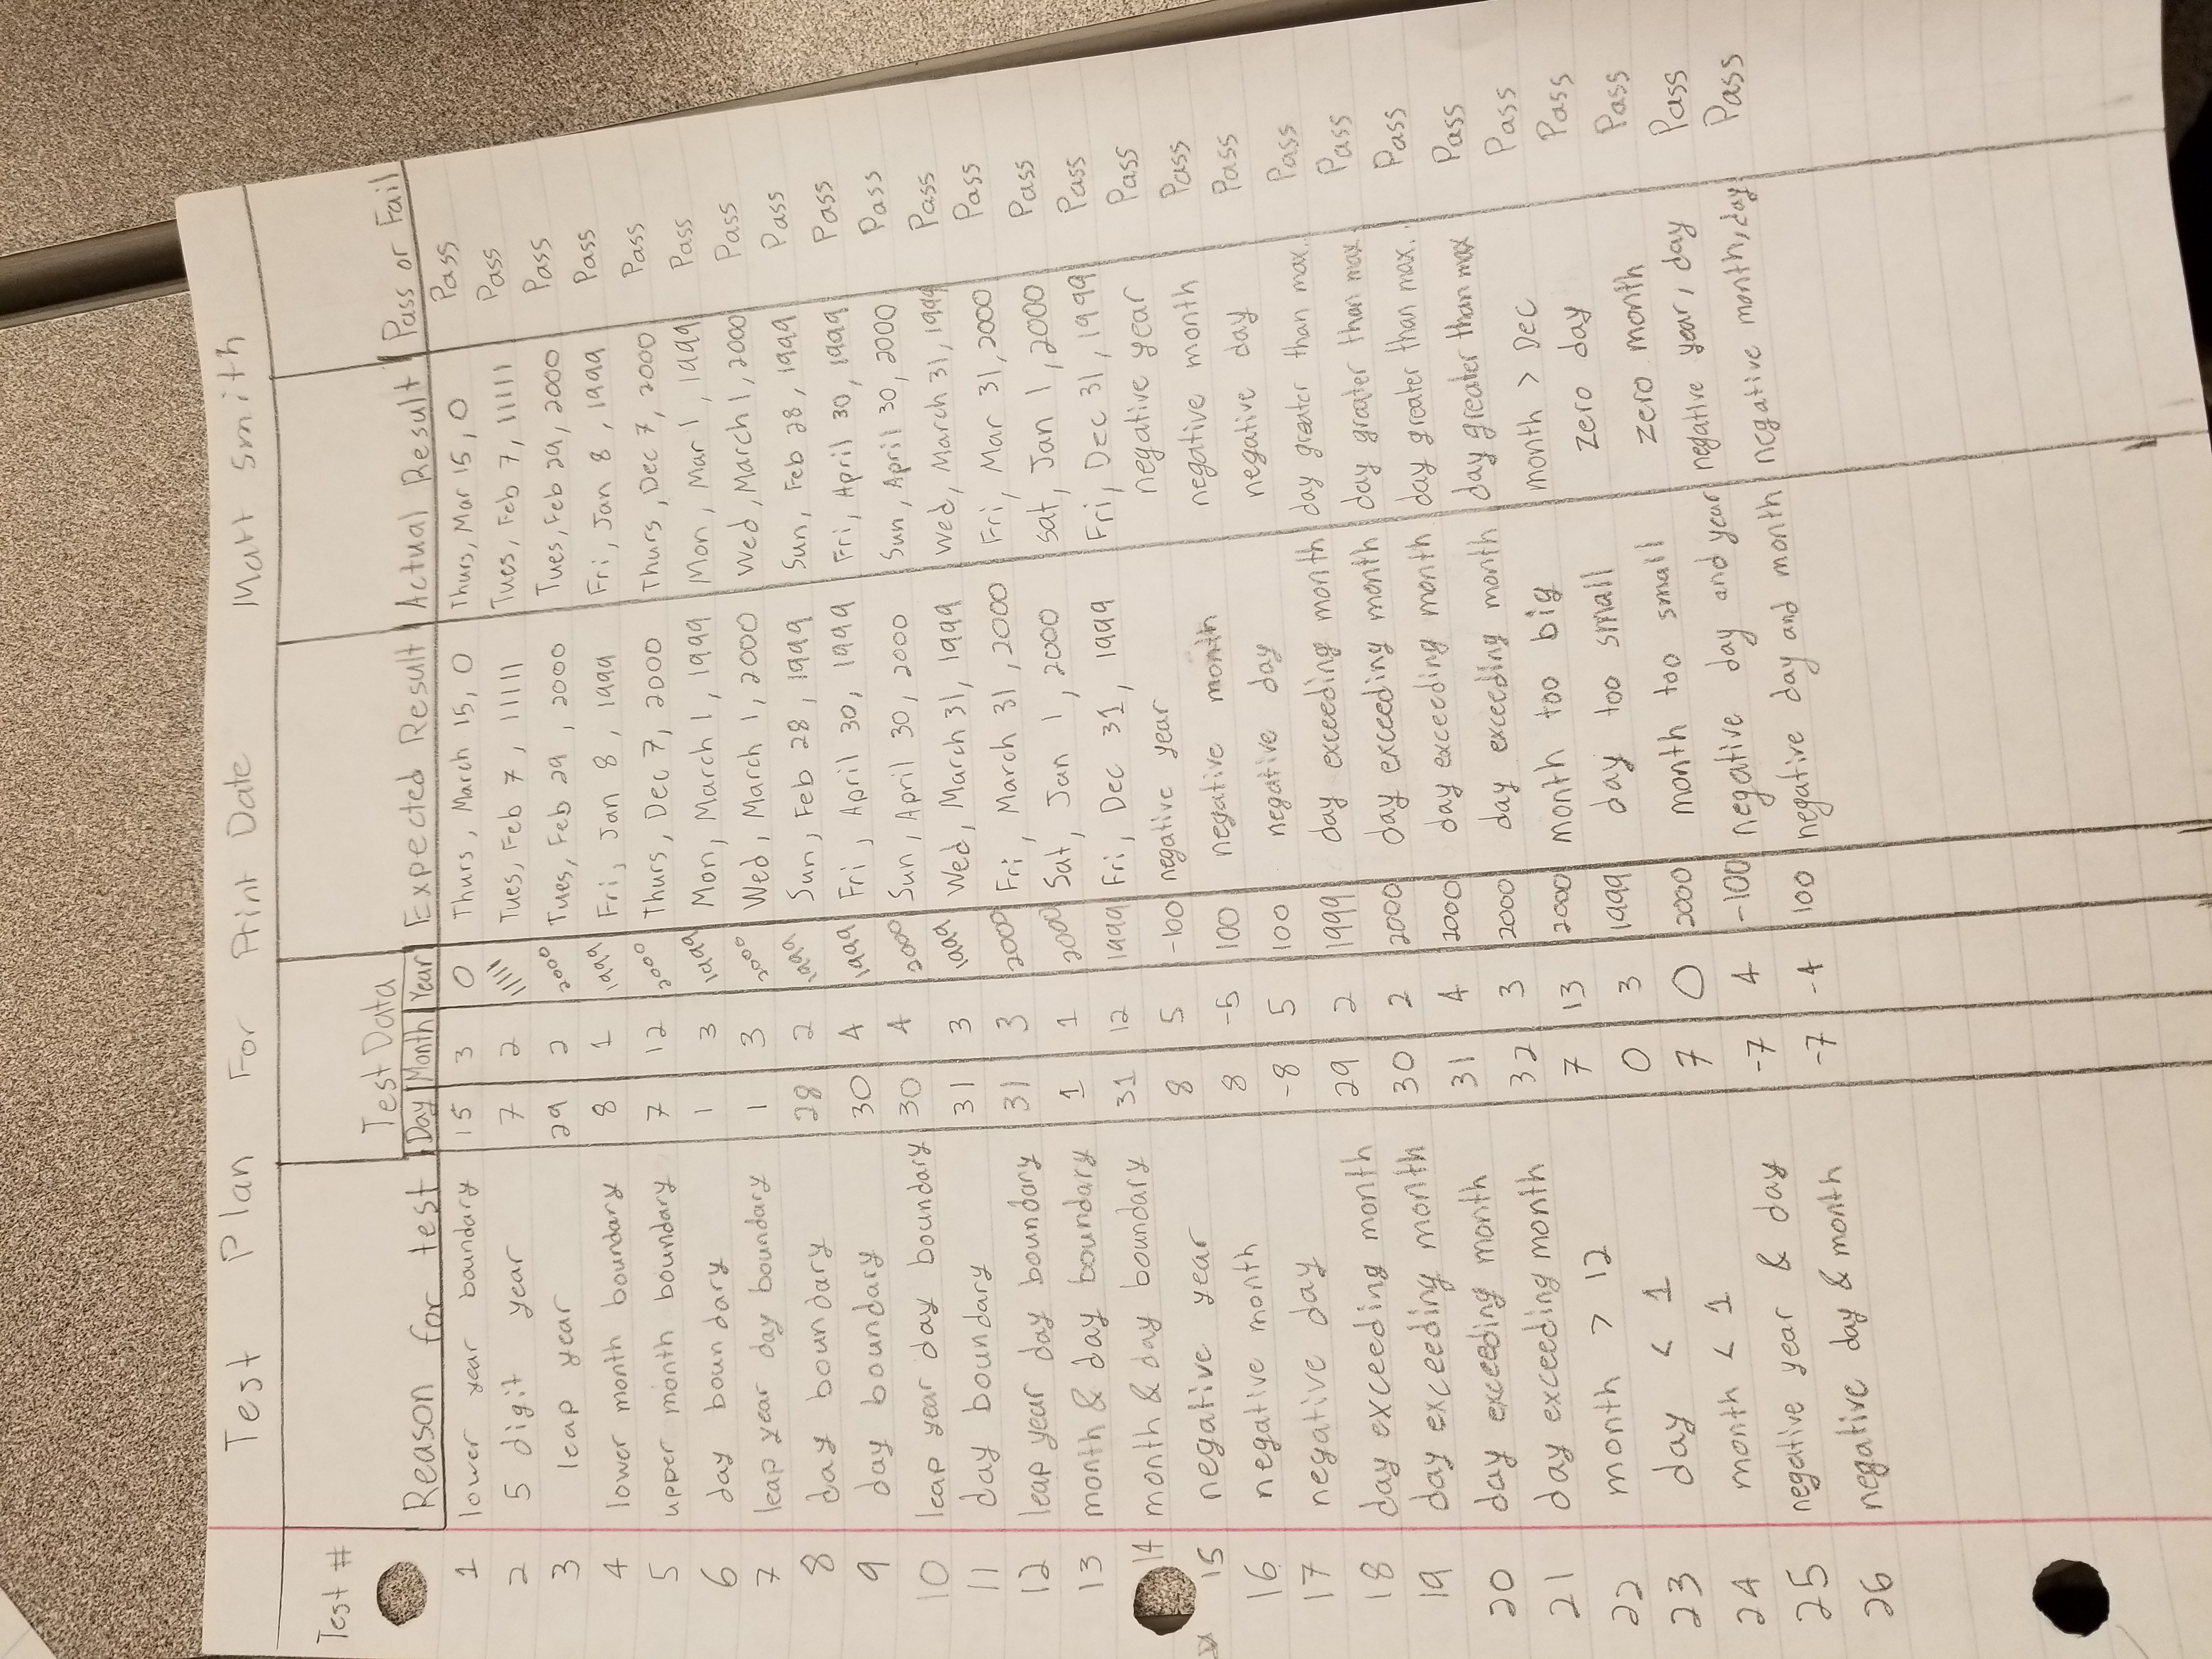 Test Plan For Print Date Matt Smith
Test #
Test Data
Reason for test Day Month Year Expected Result Actual Result Pass or Fail
1 lower year boundary 15 3 0 Thurs, March 15, 0 Thurs, Mar 15, 0 Pass
2 5 digit year 7 2 11111 Tues, Feb 7, 11111 Tues, Feb 7, 11111 Pass
3 leap year 29 2 2000 Tues, Feb 29, 2000 Tues, Feb 29, 2000 Pass
4 lower month boundary 8 1 1999 Fri, Jan 8, 1999 Fri, Jan 8, 1999 Pass
5 upper month boundary 7 12 2000 Thurs, Dec 7, 2000 Thurs, Dec 7, 2000 Pass
6 day boundary 1 3 1999 Mon, March 1, 1999 Mon, Mar 1, 1999 Pass
7 leap year day boundary 1 3 2000 Wed, March 1, 2000 Wed, March 1, 2000 Pass
8 day boundary 28 2 1999 Sun, Feb 28, 1999 Sun, Feb 28, 1999 Pass
9 day boundary 30 4 1999 Fri, April 30, 1999 Fri, April 30, 1999 Pass
10 leap year day boundary 30 4 2000 Sun, April 30, 2000 Sun, April 30, 2000 Pass
11 day boundary 31 3 1999 Wed, March 31, 1999 Wed, March 31, 1999 Pass
12 leap year day boundary 31 3 2000 Fri, March 31, 2000 Fri, Mar 31, 2000 Pass
13 month & day boundary 1 1 2000 Sat, Jan 1, 2000 Sat, Jan 1, 2000 Pass
14 month & day boundary 31 12 1999 Fri, Dec 31, 1999 Fri, Dec 31, 1999 Pass
15 negative year 8 5 -100 negative year negative year Pass
16 negative month 8 -5 100 negative month negative month Pass
17 negative day -8 5 100 negative day negative day Pass
18 day exceeding month 29 2 1999 day exceeding month day greater than max. Pass
19 day exceeding month 30 2 2000 day exceeding month day greater than max Pass
20 day exceeding month 31 4 2000 day exceeding month day greater than max. Pass
21 day exceeding month 32 3 2000 day exceeding month day greater than max Pass
22 month > 12 7 13 2000 month too big month > Dec Pass
23 day < 1 0 3 1999 day too small zero day Pass
24 month < 1 7 0 2000 month too small zero month Pass
25 negative year & day -7 4 -100 negative day and year negative year, day Pass
26 negative day & month -7 -4 100 negative day and month negative month, day Pass